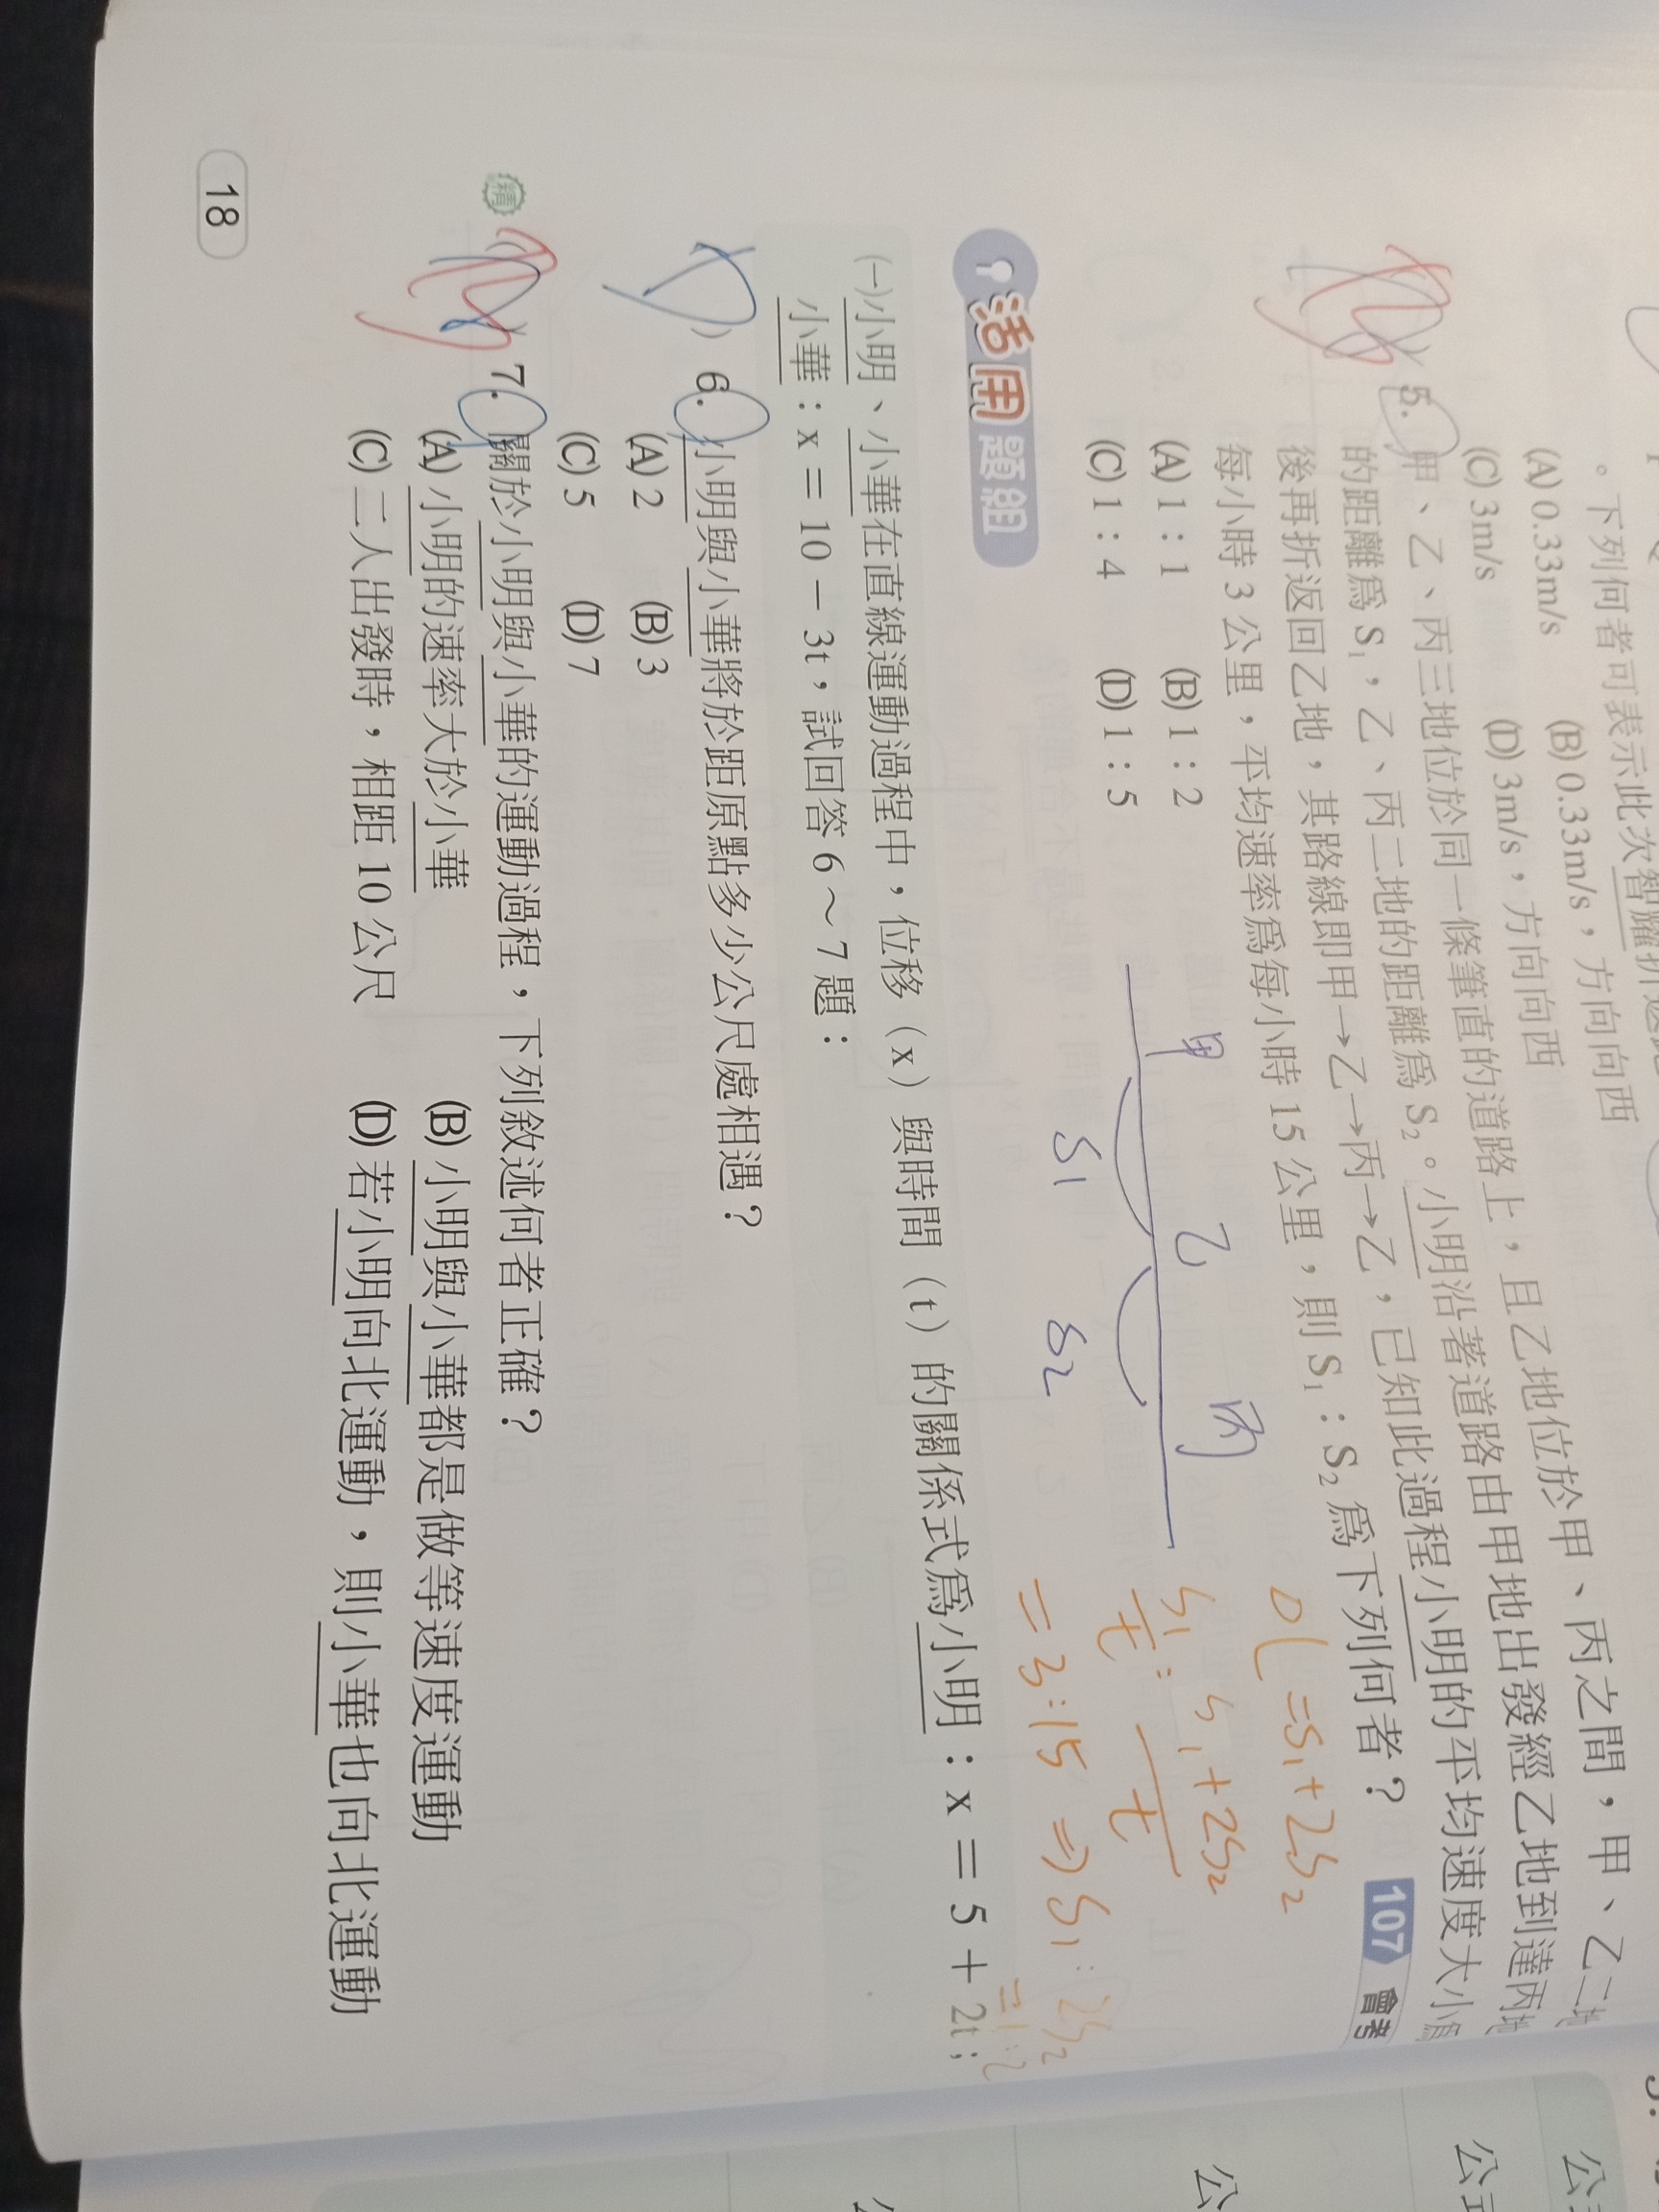 。下列何者可表示此次智耀折返跑
(A) 0.33m/s (B) 0.33m/s，方向向西
(C) 3m/s (D) 3m/s，方向向西
5. 甲、乙、丙三地位於同一條筆直的道路上，且乙地位於甲、丙之間，甲、乙二地
的距離為 S₁，乙、丙二地的距離為 S₂。小明沿著道路由甲地出發經乙地到達丙地
後再折返回乙地，其路線即甲→乙→丙→乙，已知此過程小明的平均速度大小為
每小時 3 公里，平均速率為每小時 15 公里，則 S₁：S₂ 為下列何者？ 107 會考
(A) 1：1 (B) 1：2
(C) 1：4 (D) 1：5
甲 乙 丙
S1 S2
=S₁+2S₂
S1/t : S₁+2S₂/t
=3:15 ⇒ S₁:2S₂
活用題組
(一)小明、小華在直線運動過程中，位移（x）與時間（t）的關係式為小明：x = 5 + 2t；
小華：x = 10 − 3t，試回答 6～7 題：
6. 小明與小華將於距原點多少公尺處相遇？
(A) 2 (B) 3
(C) 5 (D) 7
精
7. 關於小明與小華的運動過程，下列敘述何者正確？
(A) 小明的速率大於小華 (B) 小明與小華都是做等速度運動
(C) 二人出發時，相距 10 公尺 (D) 若小明向北運動，則小華也向北運動
18
公
公
公